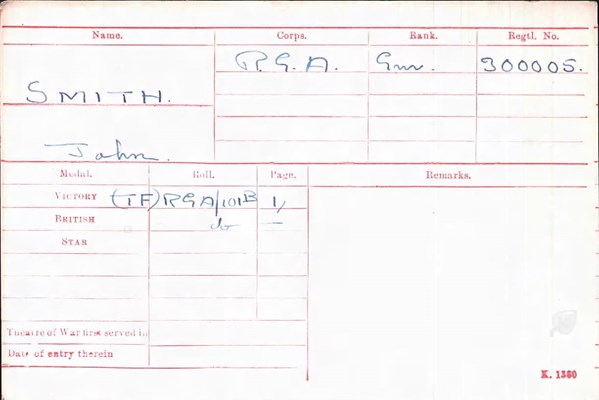 Name. Corps. Rank. Regtl. No.
R.G.A. Gnr. 300005.
SMITH.
John.
Medal. Roll. Page. Remarks.
VICTORY (TF) RGA/101B 1/
BRITISH do —
STAR
Theatre of War first served in
Date of entry therein
K. 1380